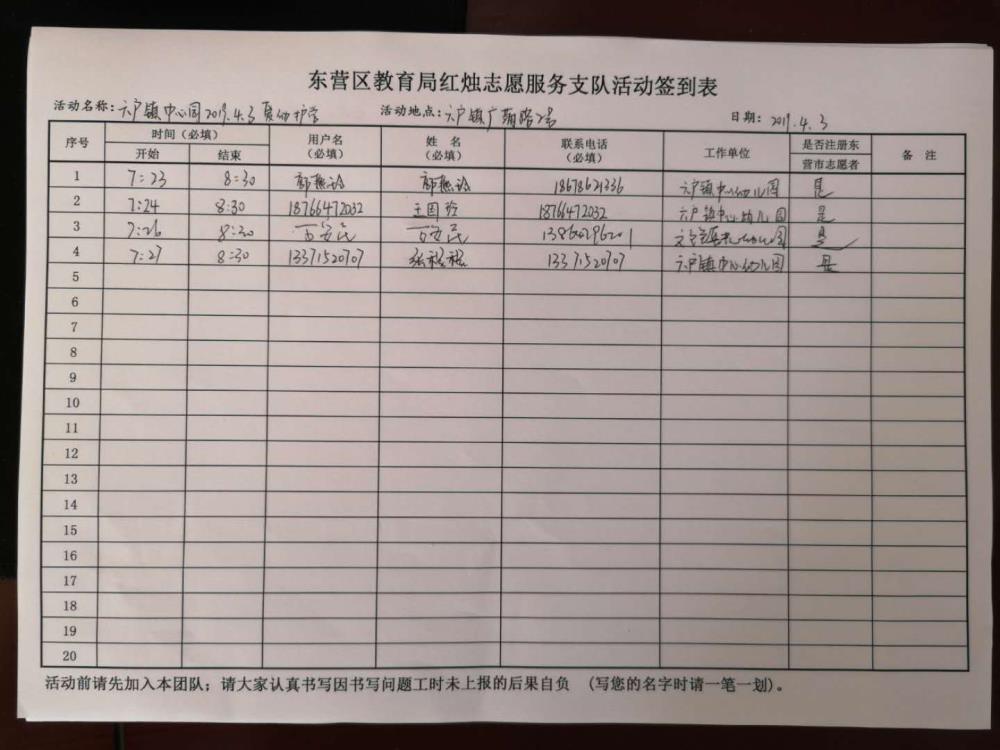 东营区教育局红烛志愿服务支队活动签到表
活动名称：六户镇中心园2019.4.3 护学 活动地点：六户镇广蒲路2号 日期：2019.4.3
序号 时间（必填） 用户名（必填） 姓 名（必填） 联系电话（必填） 工作单位 是否注册东营市志愿者 备 注
开始 结束
1 7:23 8:30 18678621336 六户镇中心幼儿园 是
2 7:24 8:30 18766472032 王国 18766472032 六户镇中心幼儿园 是
3 7:26 8:30 幼儿园 是
4 7:27 8:30 13371520707 13371520707 六户镇中心幼儿园 是
5
6
7
8
9
10
11
12
13
14
15
16
17
18
19
20
活动前请先加入本团队；请大家认真书写因书写问题工时未上报的后果自负 （写您的名字时请一笔一划）。